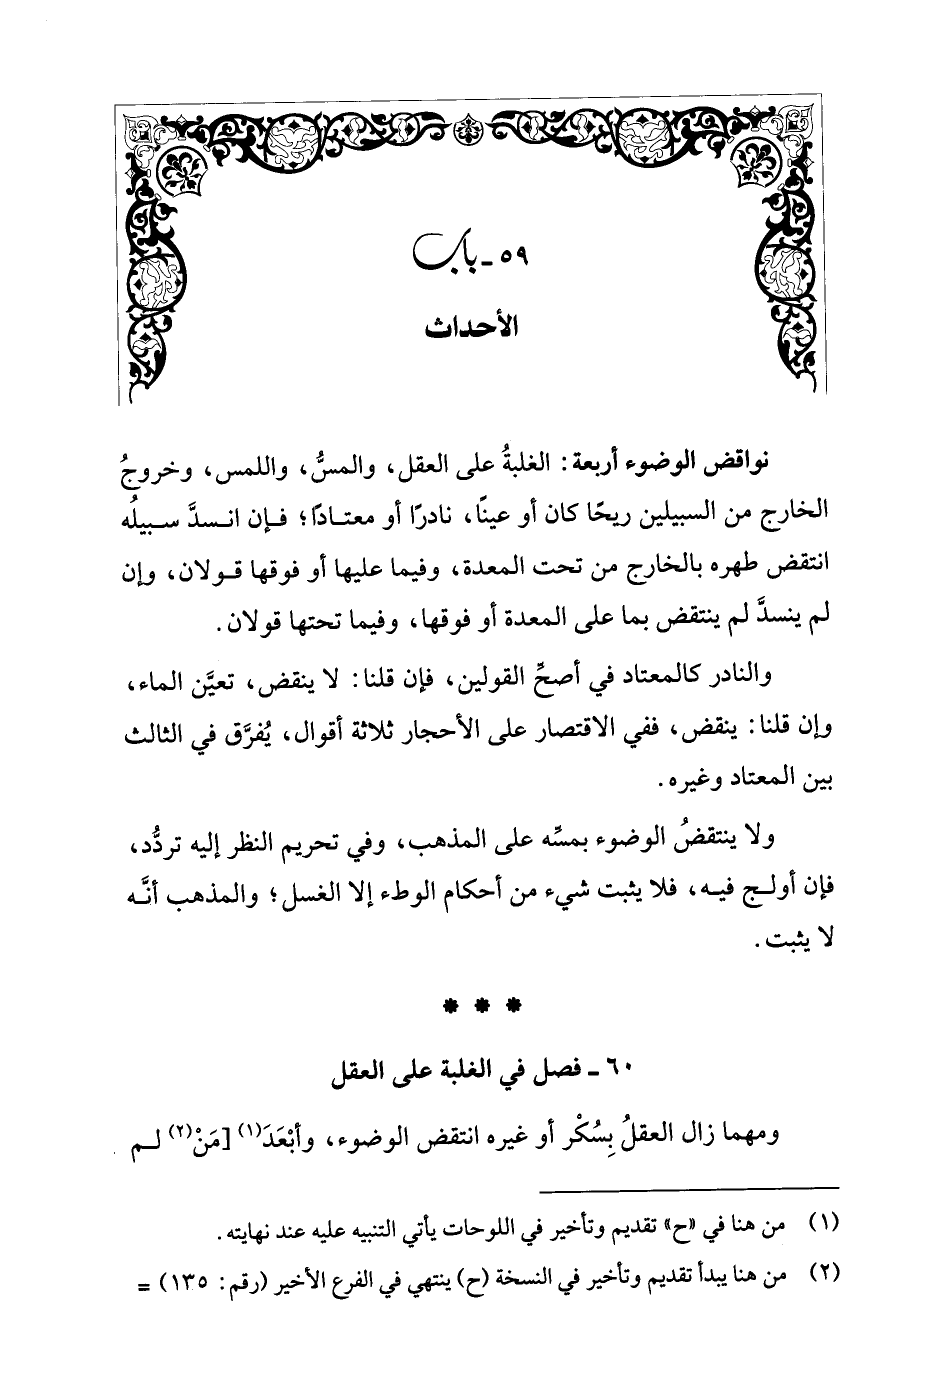 ٥٩ - باب
الأحداث
نواقض الوضوء أربعة: الغلبةُ على العقل، والمسُّ، واللمس، وخروجُ
الخارج من السبيلين ريحًا كان أو عينًا، نادرًا أو معتادًا؛ فإن انسدَّ سبيلُه
انتقض طهره بالخارج من تحت المعدة، وفيما عليها أو فوقها قولان، وإن
لم ينسدَّ لم ينتقض بما على المعدة أو فوقها، وفيما تحتها قولان.
والنادر كالمعتاد في أصحِّ القولين، فإن قلنا: لا ينقض، تعيَّن الماء،
وإن قلنا: ينقض، ففي الاقتصار على الأحجار ثلاثة أقوال، يُفرَّق في الثالث
بين المعتاد وغيره.
ولا ينتقضُ الوضوء بمسِّه على المذهب، وفي تحريم النظر إليه تردُّد،
فإن أولج فيه، فلا يثبت شيء من أحكام الوطء إلا الغسل؛ والمذهب أنَّه
لا يثبت.
* * *
٦٠ - فصل في الغلبة على العقل
ومهما زال العقلُ بِسُكْر أو غيره انتقض الوضوء، وأبْعَدَ(١) [مَنْ(٢) لم
(١) من هنا في «ح» تقديم وتأخير في اللوحات يأتي التنبيه عليه عند نهايته.
(٢) من هنا يبدأ تقديم وتأخير في النسخة (ح) ينتهي في الفرع الأخير (رقم: ١٣٥) =